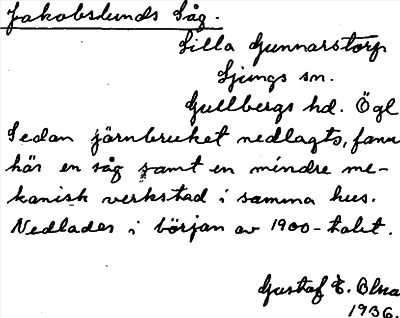 Jakobslunds Såg.
Lilla Gunnarstorp
Ljungs sn.
Gullbergs hd. Ögl
Sedan järnbruket nedlagts, fanns
här en såg samt en mindre me-
kanisk verkstad i samma hus.
Nedlades i början av 1900-talet.
Gustaf E.
1936.